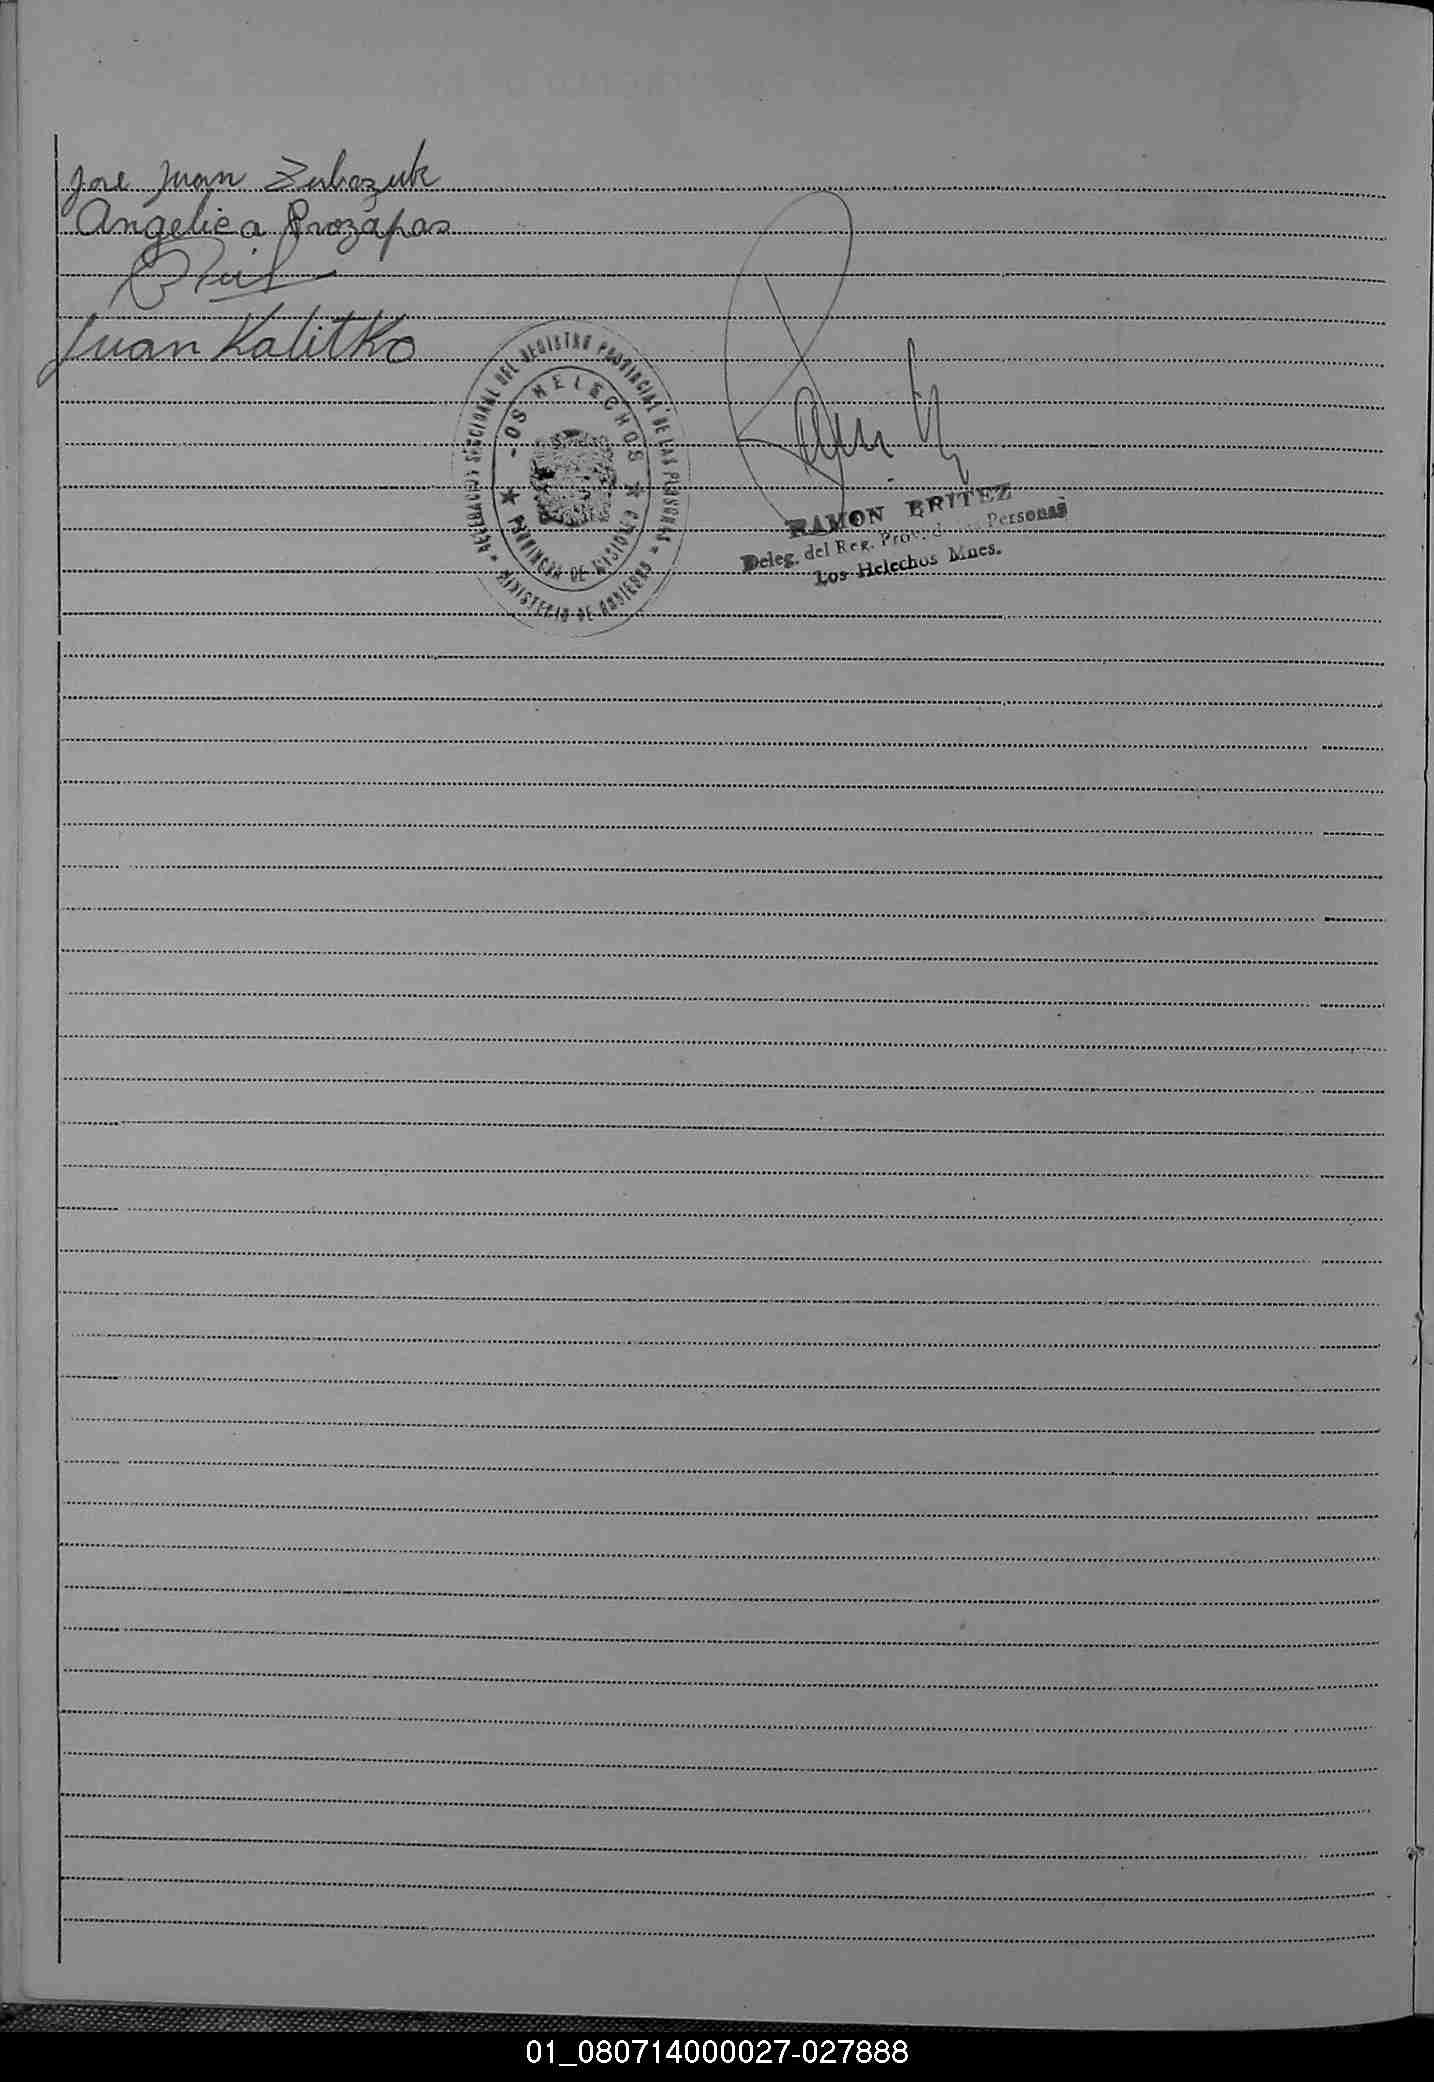 Jose Juan Zubazuk
Angelica Prozapas
Juan Kalitko
DELEGACION SECCIONAL DEL REGISTRO PROVINCIAL DE LAS PERSONAS
LOS HELECHOS
PROVINCIA DE MISIONES
MINISTERIO DE GOBIERNO
RAMON BRITEZ
Deleg. del Reg. Prov. de las Personas
Los Helechos Mnes.
01_080714000027-027888